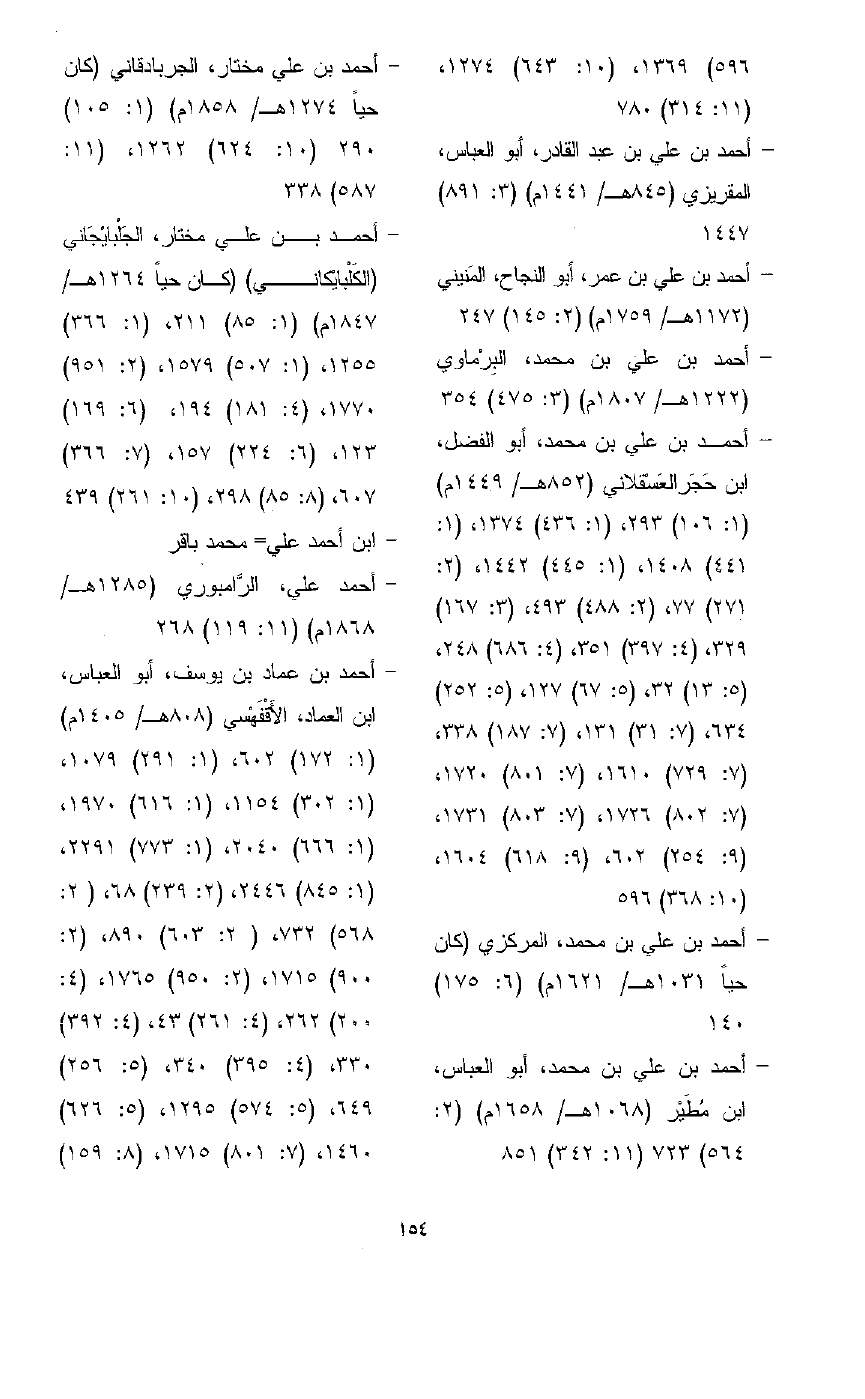 ٥٩٦) ١٣٦٩، (١٠: ٦٤٣) ١٢٧٤،
(١١: ٣١٤) ٧٨٠
- أحمد بن علي بن عبد القادر، أبو العباس،
المقريزي (٨٤٥هـ/ ١٤٤١م) (٣: ٨٩١)
١٤٤٧
- أحمد بن علي بن عمر، أبو النجاح، المَنيني
(١١٧٢هـ/ ١٧٥٩م) (٢: ١٤٥) ٢٤٧
- أحمد بن علي بن محمد، البِرْماوي
(١٢٢٢هـ/ ١٨٠٧م) (٣: ٤٧٥) ٣٥٤
- أحمد بن علي بن محمد، أبو الفضل،
ابن حَجَر العَسْقلاني (٨٥٢هـ/ ١٤٤٩م)
(١: ١٠٦) ٢٩٣، (١: ٤٣٦) ١٣٧٤، (١:
٤٤١) ١٤٠٨، (١: ٤٤٥) ١٤٤٢، (٢:
٢٧١) ٧٧، (٢: ٤٨٨) ٤٩٣، (٣: ١٦٧)
٣٢٩، (٤: ٣٩٧) ٣٥١، (٤: ٦٨٦) ٢٤٨،
(٥: ١٣) ٣٢، (٥: ٦٧) ١٢٧، (٥: ٢٥٢)
٦٣٤، (٧: ٣١) ١٣١، (٧: ١٨٧) ٣٣٨،
(٧: ٧٢٩) ١٦١٠، (٧: ٨٠١) ١٧٢٠،
(٧: ٨٠٢) ١٧٢٦، (٧: ٨٠٣) ١٧٣١،
(٩: ٢٥٤) ٦٠٢، (٩: ٦١٨) ١٦٠٤،
(١٠: ٣٦٨) ٥٩٦
- أحمد بن علي بن محمد، المركزي (كان
حياً ١٠٣١هـ/ ١٦٢١م) (٦: ١٧٥)
١٤٠
- أحمد بن علي بن محمد، أبو العباس،
ابن مُطَيْر (١٠٦٨هـ/ ١٦٥٨م) (٢:
٥٦٤) ٧٢٣ (١١: ٣٤٢) ٨٥١
- أحمد بن علي مختار، الجربادقاني (كان
حياً ١٢٧٤هـ/ ١٨٥٨م) (١: ١٠٥)
٢٩٠ (١٠: ٦٢٤) ١٢٦٢، (١١:
٥٨٧) ٣٣٨
- أحمد بن علي مختار، الجَلْبايْجَاني
(الكَلْبايْكاني) (كان حياً ١٢٦٤هـ/
١٨٤٧م) (١: ٨٥) ٢١١، (١: ٣٦٦)
١٢٥٥، (١: ٥٠٧) ١٥٧٩، (٢: ٩٥١)
١٧٧٠، (٤: ١٨١) ١٩٤، (٦: ١٦٩)
١٢٣، (٦: ٢٢٤) ١٥٧، (٧: ٣٦٦)
٦٠٧، (٨: ٨٥) ٢٩٨، (١٠: ٢٦١) ٤٣٩
- ابن أحمد علي= محمد باقر
- أحمد علي، الرَّامبوري (١٢٨٥هـ/
١٨٦٨م) (١١: ١١٩) ٢٦٨
- أحمد بن عماد بن يوسف، أبو العباس،
ابن العماد، الأَقْفَهْسي (٨٠٨هـ/ ١٤٠٥م)
(١: ١٧٢) ٦٠٢، (١: ٢٩١) ١٠٧٩،
(١: ٣٠٢) ١١٥٤، (١: ٦١٦) ١٩٧٠،
(١: ٦٦٦) ٢٠٤٠، (١: ٧٧٣) ٢٢٩١،
(١: ٨٤٥) ٢٤٤٦، (٢: ٢٣٩) ٦٨، ( ٢:
٥٦٨) ٧٣٢، ( ٢: ٦٠٣) ٨٩٠، (٢:
٩٠٠) ١٧١٥، (٢: ٩٥٠) ١٧٦٥، (٤:
٢٠٠) ٢٦٢، (٤: ٢٦١) ٤٣، (٤: ٣٩٢)
٣٣٠، (٤: ٣٩٥) ٣٤٠، (٥: ٢٥٦)
٦٤٩، (٥: ٥٧٤) ١٢٩٥، (٥: ٦٢٦)
١٤٦٠، (٧: ٨٠١) ١٧١٥، (٨: ١٥٩)
١٥٤